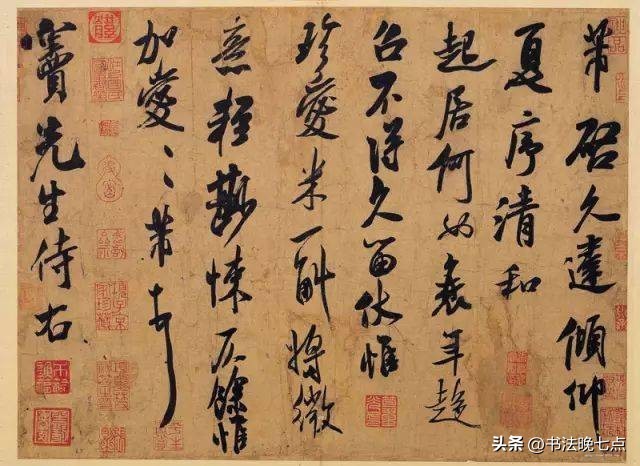 芾啓久違傾仰
夏序清和
起居何如衰年趍
召不得久留伏惟
珍愛米一斛將微
意輕尠悚仄餘惟
加愛〻芾頓首
竇先生侍右
头条 @书法晚七点